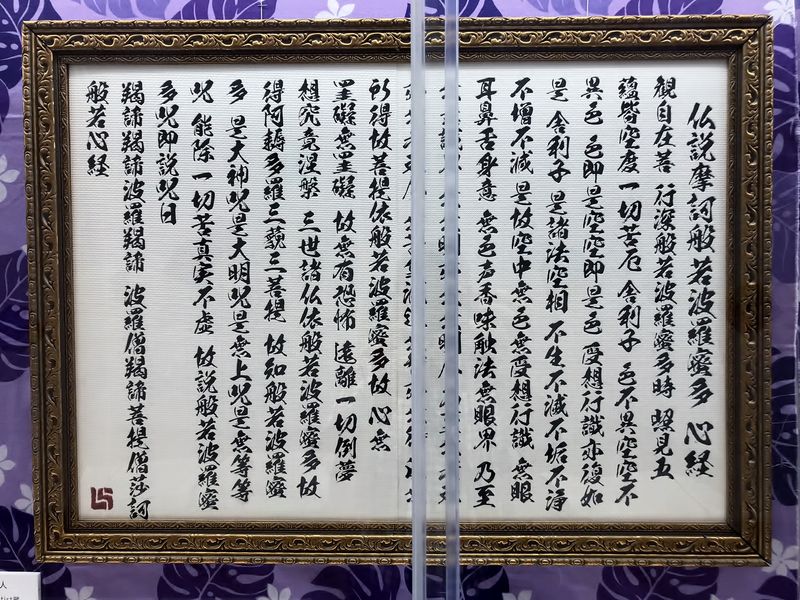 仏説摩訶般若波羅蜜多 心経
観自在菩 行深般若波羅蜜多時 照見五
蘊皆空度 一切苦厄 舎利子 色不異空空不
異色 色即是空空即是色 受想行識亦復如
是 舎利子 是諸法空相 不生不滅不垢不浄
不増不減 是故空中無色無受想行識 無眼
耳鼻舌身意 無色声香味触法無眼界 乃至
所得故菩提依般若波羅蜜多故 心無
罣礙無罣礙 故無有恐怖 遠離一切倒夢
想究竟涅槃 三世諸仏依般若波羅蜜多故
得阿耨多羅三藐三菩提 故知般若波羅蜜
多 是大神呪是大明呪是無上呪是無等等
呪 能除一切苦真実不虚 故説般若波羅蜜
多呪即説呪曰
羯諦羯諦波羅羯諦 波羅僧羯諦菩提僧莎訶
般若心経
人